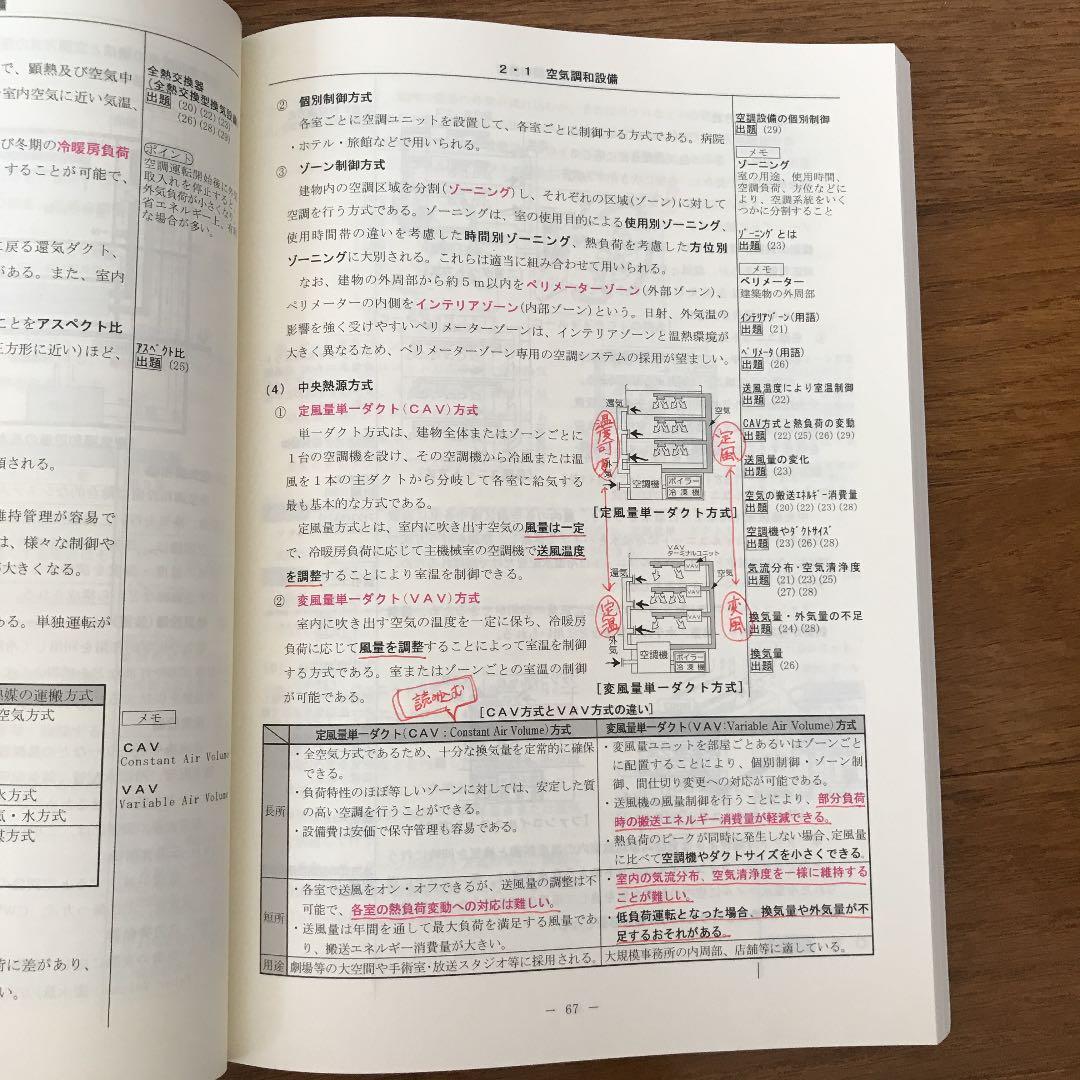 で、顕熱及び空気中
室内空気に近い気温、
び冬期の冷暖房負荷
することが可能で、
に戻る還気ダクト、
がある。また、室内
ことをアスペクト比
(正方形に近い)ほど、
頭される。
維持管理が容易で
は、様々な制御や
が大きくなる。
ある。単独運転が
熱媒の運搬方式
空気方式
水方式
気・水方式
媒方式
荷に差があり、
い。
全熱交換器
(全熱交換型換気設備
出題 (20)(22)(23)
(26)(28)(29)
ポイント
空調運転開始後に外
取入れを停止する
外気負荷が小さくなり
省エネルギー上、有
な場合が多い。
アスペクト比
出題 (25)
メモ
CAV
Constant Air Volume
VAV
Variable Air Volume
2・1 空気調和設備
② 個別制御方式
各室ごとに空調ユニットを設置して、各室ごとに制御する方式である。病院
・ホテル・旅館などで用いられる。
③ ゾーン制御方式
建物内の空調区域を分割(ゾーニング)し、それぞれの区域(ゾーン)に対して
空調を行う方式である。ゾーニングは、室の使用目的による使用別ゾーニング、
使用時間帯の違いを考慮した時間別ゾーニング、熱負荷を考慮した方位別
ゾーニングに大別される。これらは適当に組み合わせて用いられる。
なお、建物の外周部から約5m以内をペリメーターゾーン(外部ゾーン)、
ペリメーターの内側をインテリアゾーン(内部ゾーン)という。日射、外気温の
影響を強く受けやすいペリメーターゾーンは、インテリアゾーンと温熱環境が
大きく異なるため、ペリメーターゾーン専用の空調システムの採用が望ましい。
(4) 中央熱源方式
① 定風量単一ダクト(CAV)方式
単一ダクト方式は、建物全体またはゾーンごとに
1台の空調機を設け、その空調機から冷風または温
風を1本の主ダクトから分岐して各室に給気する
最も基本的な方式である。
定風量方式とは、室内に吹き出す空気の風量は一定
で、冷暖房負荷に応じて主機械室の空調機で送風温度
を調整することにより室温を制御できる。
② 変風量単一ダクト(VAV)方式
室内に吹き出す空気の温度を一定に保ち、冷暖房
負荷に応じて風量を調整することによって室温を制御
する方式である。室またはゾーンごとの室温の制御
が可能である。
還気
空気
温度可変
定風
外気
空調機
ボイラー
冷凍機
[定風量単一ダクト方式]
VAV
ターミナルユニット
VAV
還気
空気
VAV
VAV
定温
変風
外気
空調機
ボイラー
冷凍機
[変風量単一ダクト方式]
空調設備の個別制御
出題 (29)
メモ
ゾーニング
室の用途、使用時間、
空調負荷、方位などに
より、空調系統をいく
つかに分割すること
ゾーニングとは
出題 (23)
メモ
ペリメーター
建築物の外周部
インテリアゾーン(用語)
出題 (21)
ペリメータ(用語)
出題 (26)
送風温度により室温制御
出題 (22)
CAV方式と熱負荷の変動
出題 (22)(25)(26)(29)
送風量の変化
出題 (23)
空気の搬送エネルギー消費量
出題 (20)(22)(23)(28)
空調機やダクトサイズ
出題 (23)(26)(28)
気流分布・空気清浄度
出題 (21)(23)(25)
(27)(28)
換気量・外気量の不足
出題 (24)(28)
換気量
出題 (26)
[CAV方式とVAV方式の違い]
定風量単一ダクト(CAV:Constant Air Volume)方式
変風量単一ダクト(VAV:Variable Air Volume)方式
長所
・全空気方式であるため、十分な換気量を定常的に確保
できる。
・負荷特性のほぼ等しいゾーンに対しては、安定した質
の高い空調を行うことができる。
・設備費は安価で保守管理も容易である。
・変風量ユニットを部屋ごとあるいはゾーンごと
に配置することにより、個別制御・ゾーン制
御、間仕切り変更への対応が可能である。
・送風機の風量制御を行うことにより、部分負荷
時の搬送エネルギー消費量が軽減できる。
・熱負荷のピークが同時に発生しない場合、定風量
に比べて空調機やダクトサイズを小さくできる。
短所
・各室で送風をオン・オフできるが、送風量の調整は不
可能で、各室の熱負荷変動への対応は難しい。
・送風量は年間を通して最大負荷を満足する風量であ
り、搬送エネルギー消費量が大きい。
・室内の気流分布、空気清浄度を一様に維持する
ことが難しい。
・低負荷運転となった場合、換気量や外気量が不
足するおそれがある。
用途
劇場等の大空間や手術室・放送スタジオ等に採用される。
大規模事務所の内周部、店舗等に適している。
— 67 —